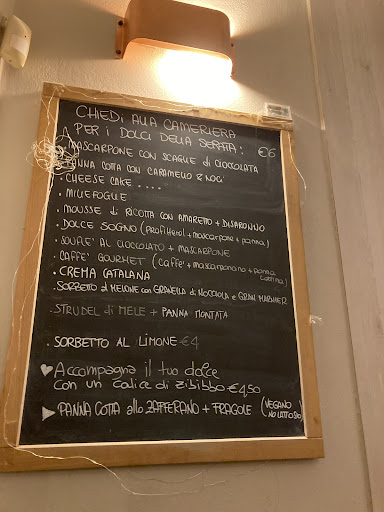 CHIEDI ALLA CAMERIERA
PER I DOLCI DELLA SERATA: €6
MASCARPONE CON SCAGLIE di CIOCCOLATA
PANNA COTTA CON CARAMELLO & NOCI
. CHEESE CAKE ....
. MILLEFOGLIE
. MOUSSE di RICOTTA CON AMARETTO + DISARONNO
. DOLCE SOGNO (PROFITEROL + mascarpone + panna)
. SOUFLÈ AL CIOCCOLATO + MASCARPONE
. CAFFE' GOURMET (caffe' + mascarponcino + panna cottina)
. CREMA CATALANA
. SORBETTO al MELONE con GRANELLA di NOCCIOLA e GRAN MARNIER
. STRUDEL di MELE + PANNA MONTATA
. SORBETTO AL LIMONE €4
♥ Accompagna il tuo dolce
con un calice di zibibbo €4,50
▶ PANNA COTTA allo ZAFFERANO + FRAGOLE (VEGANO
NO LATTOSIO)